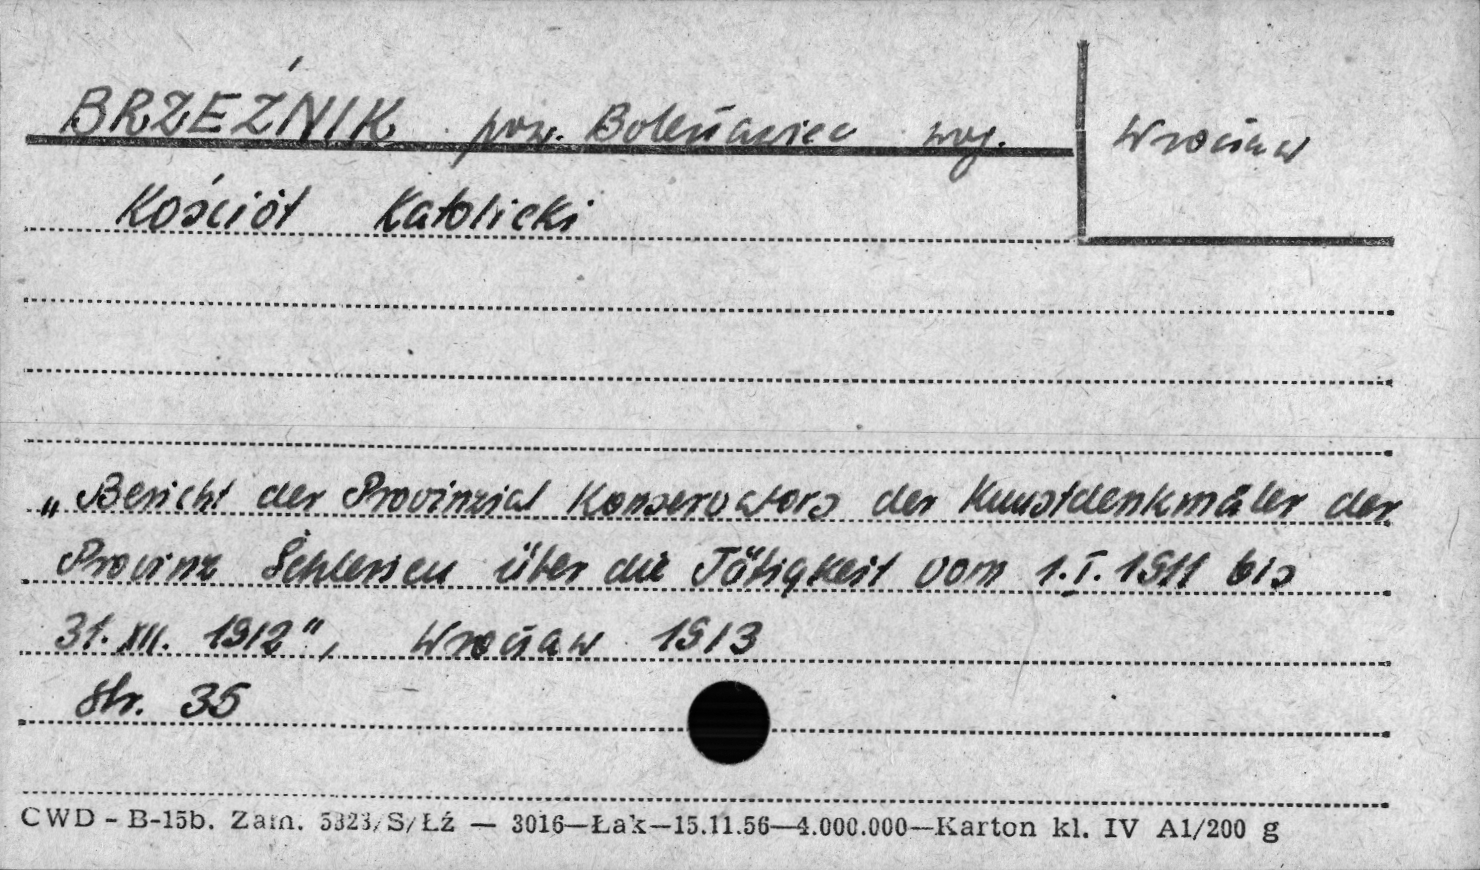 BRZEŹNIK pow. Bolesławiec woj. Wrocław
Kościół Katolicki
„Bericht der Provinzial Konservators der Kunstdenkmäler der
Provinz Schlesien über die Tätigkeit vom 1.I.1911 bis
31.XII. 1912", Wrocław 1913
Str. 35
CWD - B-15b. Zam. 5323/S/Łź — 3016—Łak—15.11.56—4.000.000—Karton kl. IV A1/200 g